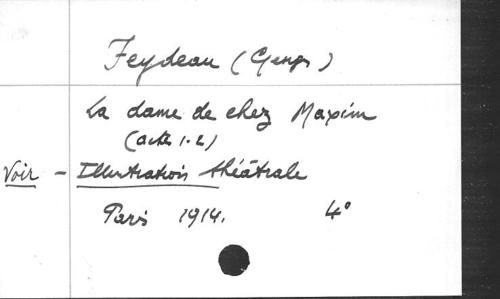 Feydeau (Georges)
La dame de chez Maxim
(actes 1-2)
Voir - Illustration théâtrale
Paris 1914. 4°